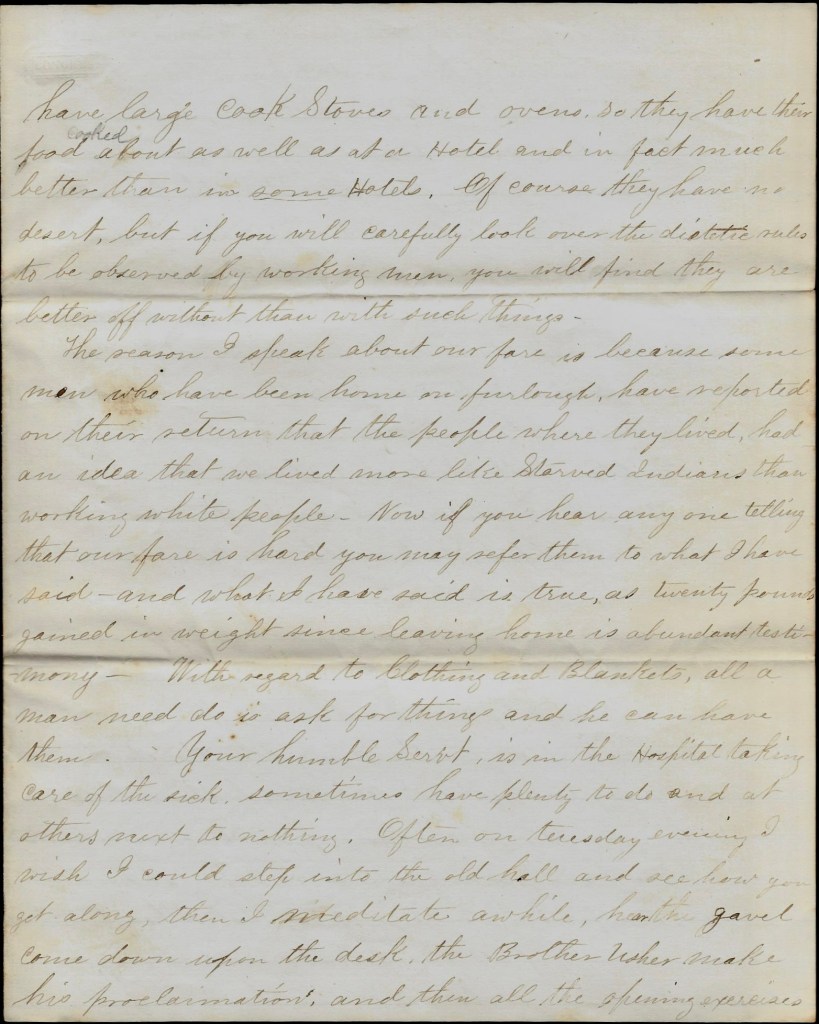 have large Cook Stoves and ovens. So they have their
cooked
food about as well as at a Hotel and in fact much
better than in some Hotels. Of course they have no
desert, but if you will carefully look over the dietetic rules
to be observed by working men, you will find they are
better off without than with such things -
The reason I speak about our fare is because some
men who have been home on furlough, have reported
on their return that the people where they lived, had
an idea that we lived more like Starved Indians than
working white people - Now if you hear any one telling
that our fare is hard you may refer them to what I have
said - and what I have said is true, as twenty pounds
gained in weight since leaving home is abundant testi-
mony - With regard to Clothing and Blankets, all a
man need do is ask for things and he can have
them. Your humble Servt, is in the Hospital taking
care of the sick, sometimes have plenty to do and at
others next to nothing. Often on tuesday evening I
wish I could step into the old hall and see how you
get along, then I meditate awhile, hear the gavel
come down upon the desk, the Brother Usher make
his proclaimation, and then all the opening exercises